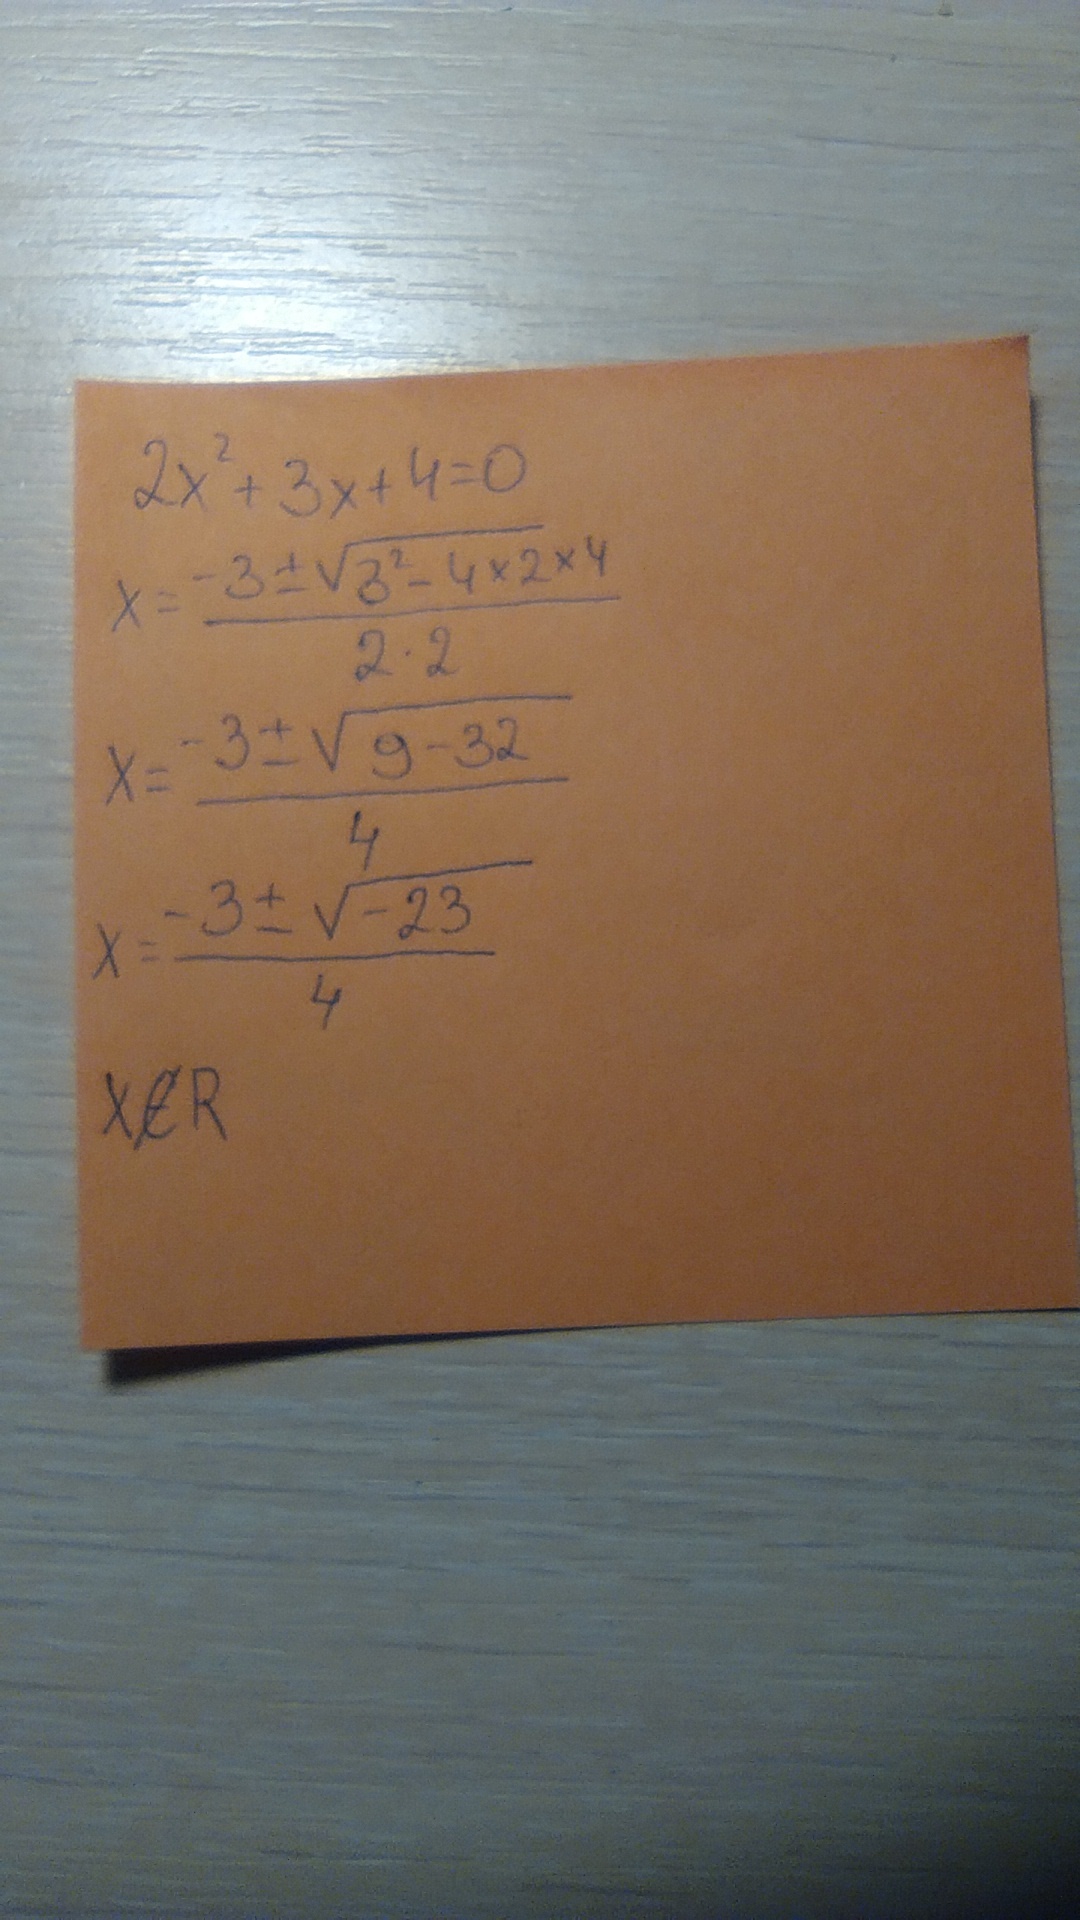 2x²+3x+4=0
x=(-3±√(3²-4×2×4))/(2·2)
x=(-3±√(9-32))/4
x=(-3±√(-23))/4
x∉R